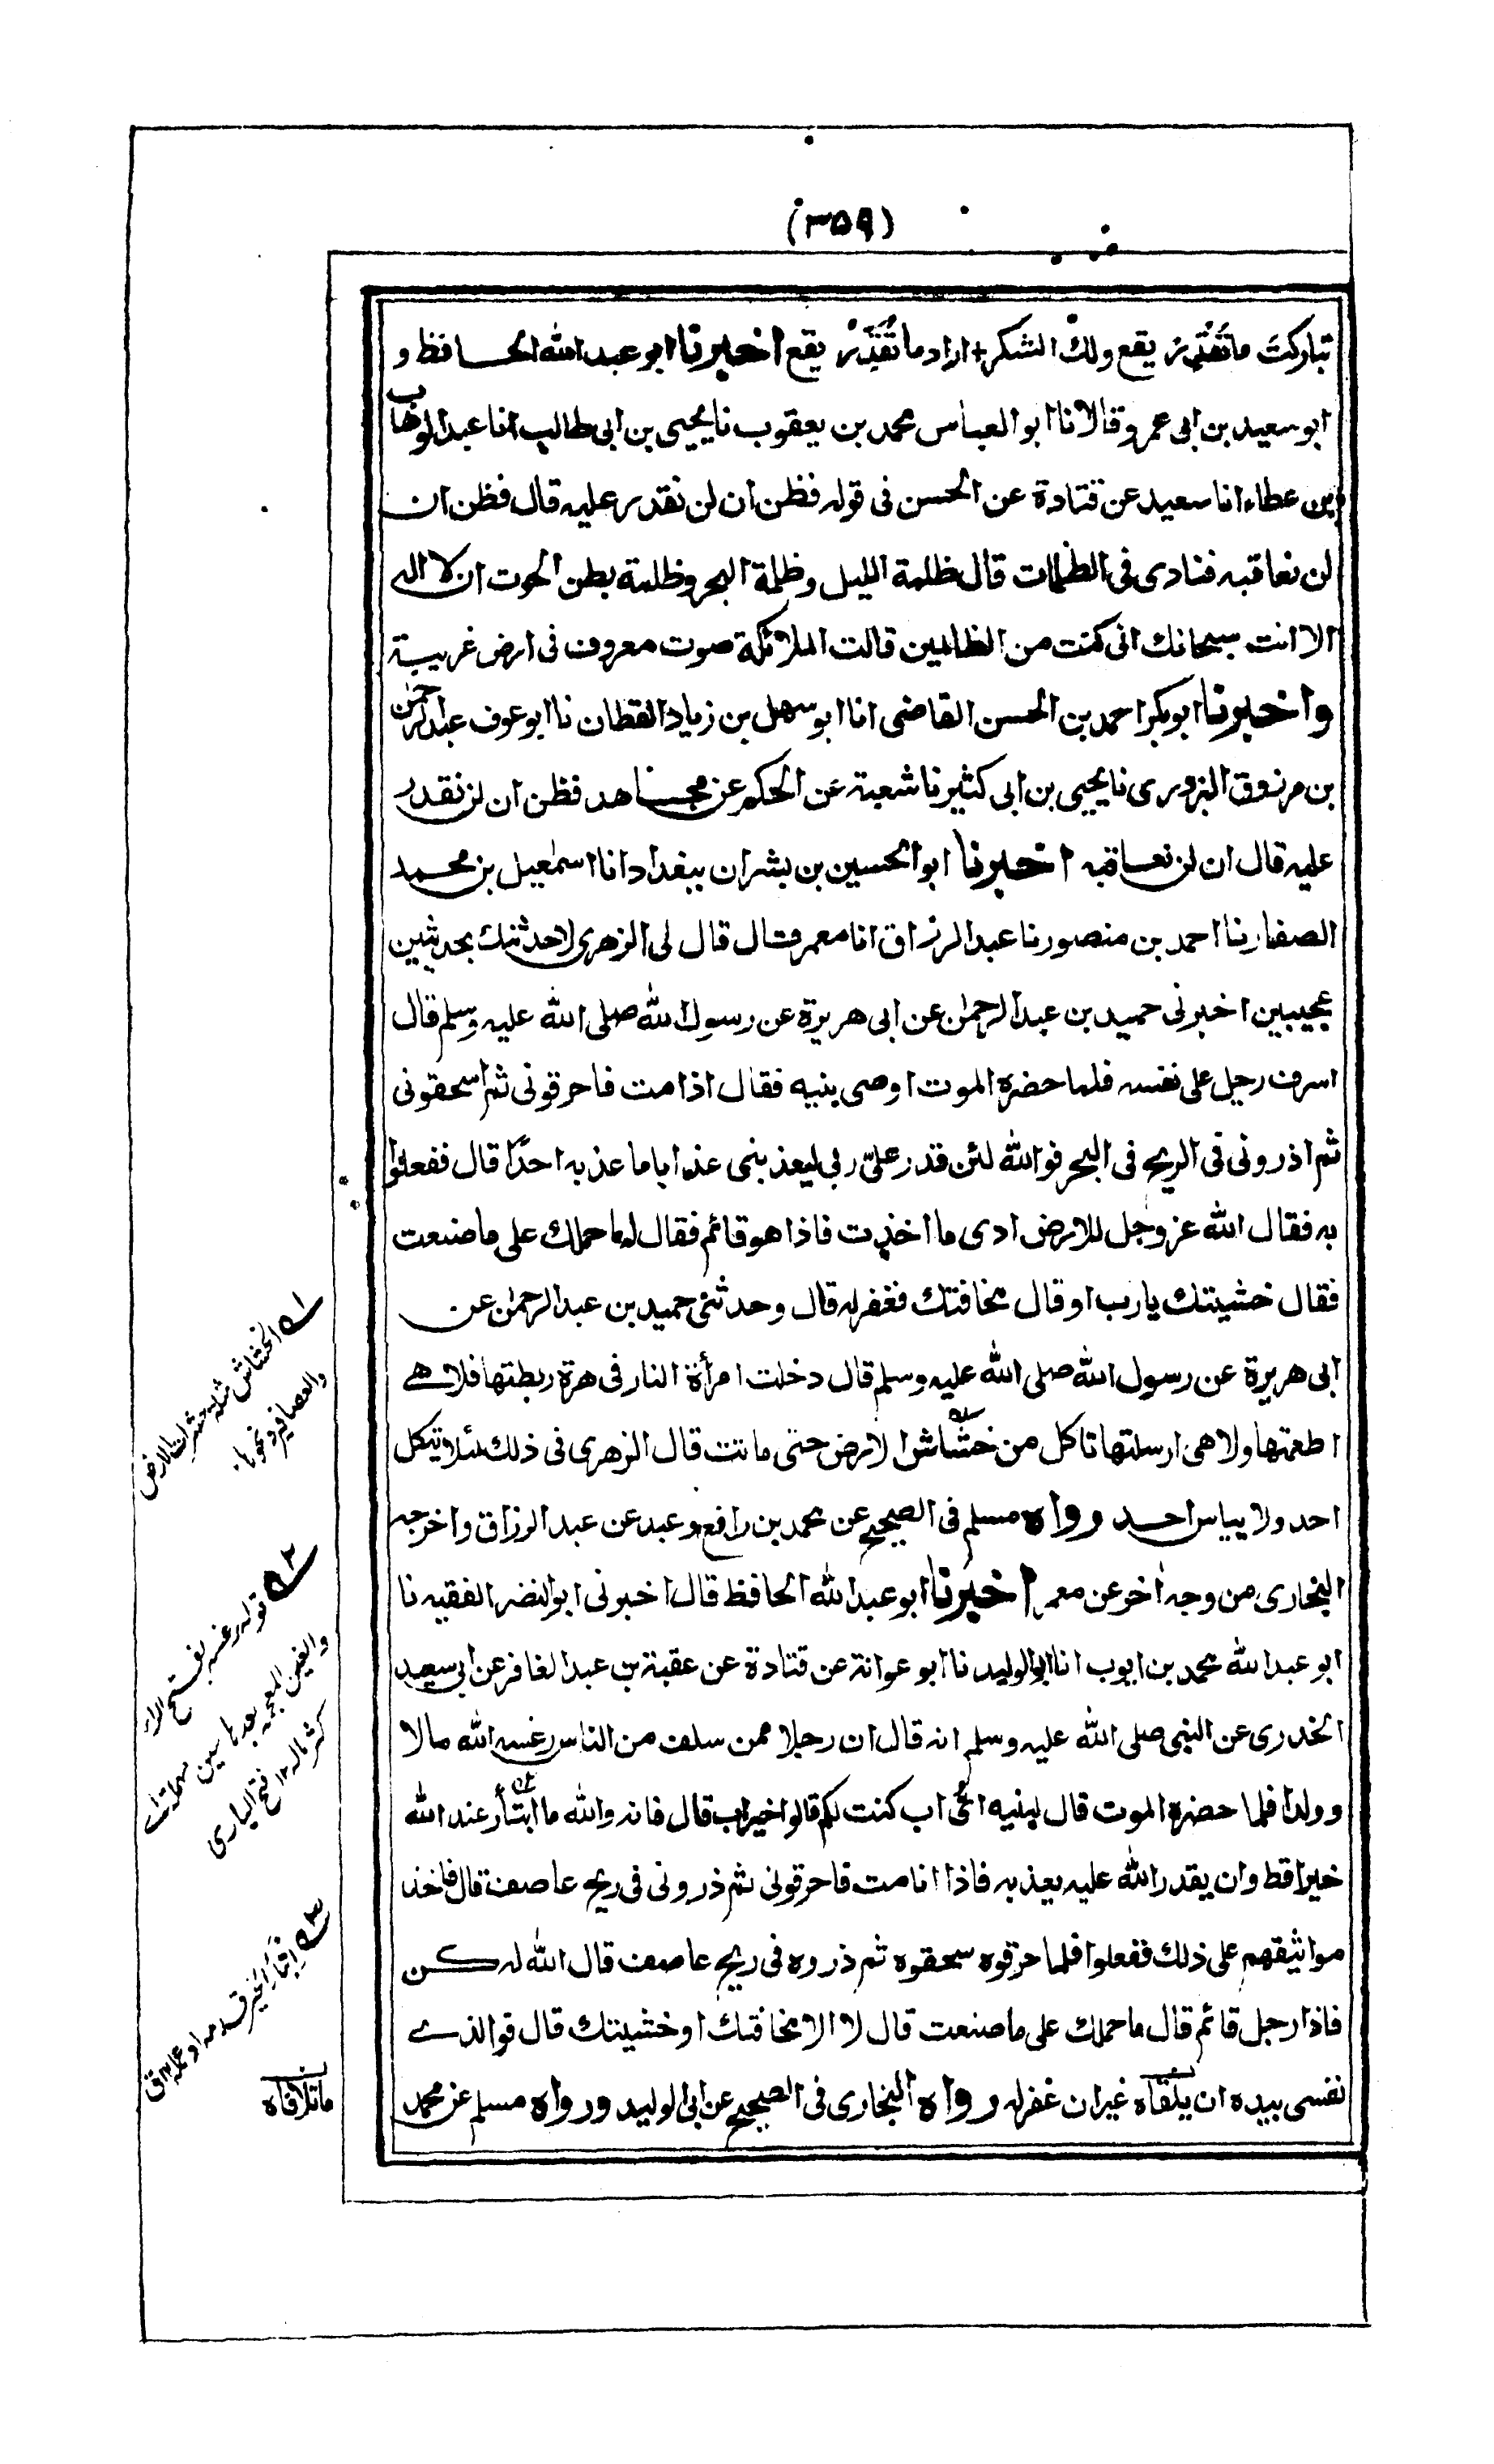 (۳۵۹)
تباركتَ ما تَقْدِرْ يقع ولك الشكر + اراد ما تُقَدِّرْ يقع اخبرنا ابو عبد الله الحافظ و
ابو سعيد بن ابى عمرو قالا نا ابو العباس محمد بن يعقوب نا يحيى بن ابى طالب انا عبد الوهاب
بن عطاء انا سعيد عن قتادة عن الحسن فى قوله فظن ان لن نقدر عليه قال فظن ان
لن نعاقبه فنادى فى الظلمات قال ظلمة الليل وظلمة البحر وظلمة بطن الحوت ان لا اله
الا انت سبحانك انى كنت من الظالمين قالت الملائكة صوت معروف فى ارض غريبة
واخبرنا ابو بكر احمد بن الحسن القاضى انا ابو سهل بن زياد القطان نا ابو عوف عبد الرحمن
بن مرزوق البزورى نا يحيى بن ابى كثير نا شعبة عن الحكم عن مجاهد فظن ان لن نقدر
عليه قال ان لن نعاقبه اخبرنا ابو الحسين بن بشران ببغداد انا اسمعيل بن محمد
الصفار نا احمد بن منصور نا عبد الرزاق انا معمر قال قال لى الزهرى لاحدثنك بحديثين
عجيبين اخبرنى حميد بن عبد الرحمن عن ابى هريرة عن رسول الله صلى الله عليه وسلم قال
اسرف رجل على نفسه فلما حضره الموت اوصى بنيه فقال اذا مت فاحرقونى ثم اسحقونى
ثم اذرونى فى الريح فى البحر فوالله لئن قدر علىّ ربى ليعذبنى عذابا ما عذبه احدًا قال ففعلوا
به فقال الله عز وجل للارض ادى ما اخذت فاذا هو قائم فقال له ما حملك على ما صنعت
فقال خشيتك يا رب او قال مخافتك فغفر له قال وحدثنى حميد بن عبد الرحمن عن
ابى هريرة عن رسول الله صلى الله عليه وسلم قال دخلت امرأة النار فى هرة ربطتها فلا هے
اطعمتها ولا هى ارسلتها تاكل من خشاش الارض حتى ماتت قال الزهرى فى ذلك لئلا يتكل
احد ولا ييأس احد رواه مسلم فى الصحيح عن محمد بن رافع وعبد عن عبد الرزاق واخرجه
البخارى من وجه اخر عن معمر اخبرنا ابو عبد الله الحافظ قال اخبرنى ابو النضر الفقيه نا
ابو عبد الله محمد بن ايوب انا ابو الوليد نا ابو عوانة عن قتادة عن عقبة بن عبد الغافر عن ابى سعيد
الخدرى عن النبى صلى الله عليه وسلم انه قال ان رجلا ممن سلف من الناس رغسه الله مالا
وولدا فلما حضره الموت قال لبنيه اى اب كنت لكم قالوا خير اب قال فانه والله ما ابتأر عند الله
خيرا قط وان يقدر الله عليه يعذبه فاذا انا مت فاحرقونى ثم ذرونى فى ريح عاصف قال فاخذ
مواثيقهم على ذلك ففعلوا فلما حرقوه سحقوه ثم ذروه فى ريح عاصف قال الله له كن
فاذا رجل قائم قال ما حملك على ما صنعت قال لا الا مخافتك او خشيتك قال فوالذے
نفسى بيده ان يلقاه غير ان غفر له رواه البخارى فى الصحيح عن ابى الوليد ورواه مسلم عن محمد
۱ الخشاش مثلثة حشرات الارض
والعصافير ونحوها
۲ قوله رغسه بفتح الراء
والغين المعجمة بعدها سين مهملة اى
كثر ماله ۱۲ فتح البارى
۳ ابتأر الخير قدمه او عمله ق
ما تلافاه